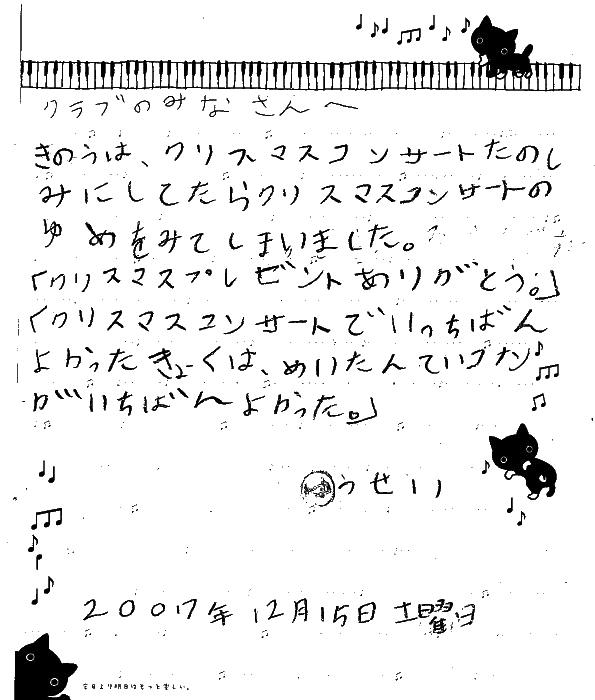 クラブのみなさんへ
きのうは、クリスマスコンサートたのし
みにしてたらクリスマスコンサートの
ゆめをみてしまいました。
「クリスマスプレゼントありがとう。」
「クリスマスコンサートでいっちばん
よかったきょくは、めいたんていコナン
がいちばんよかった。」
うせい
2007年12月15日 土曜日
今日より明日はもっと楽しい。